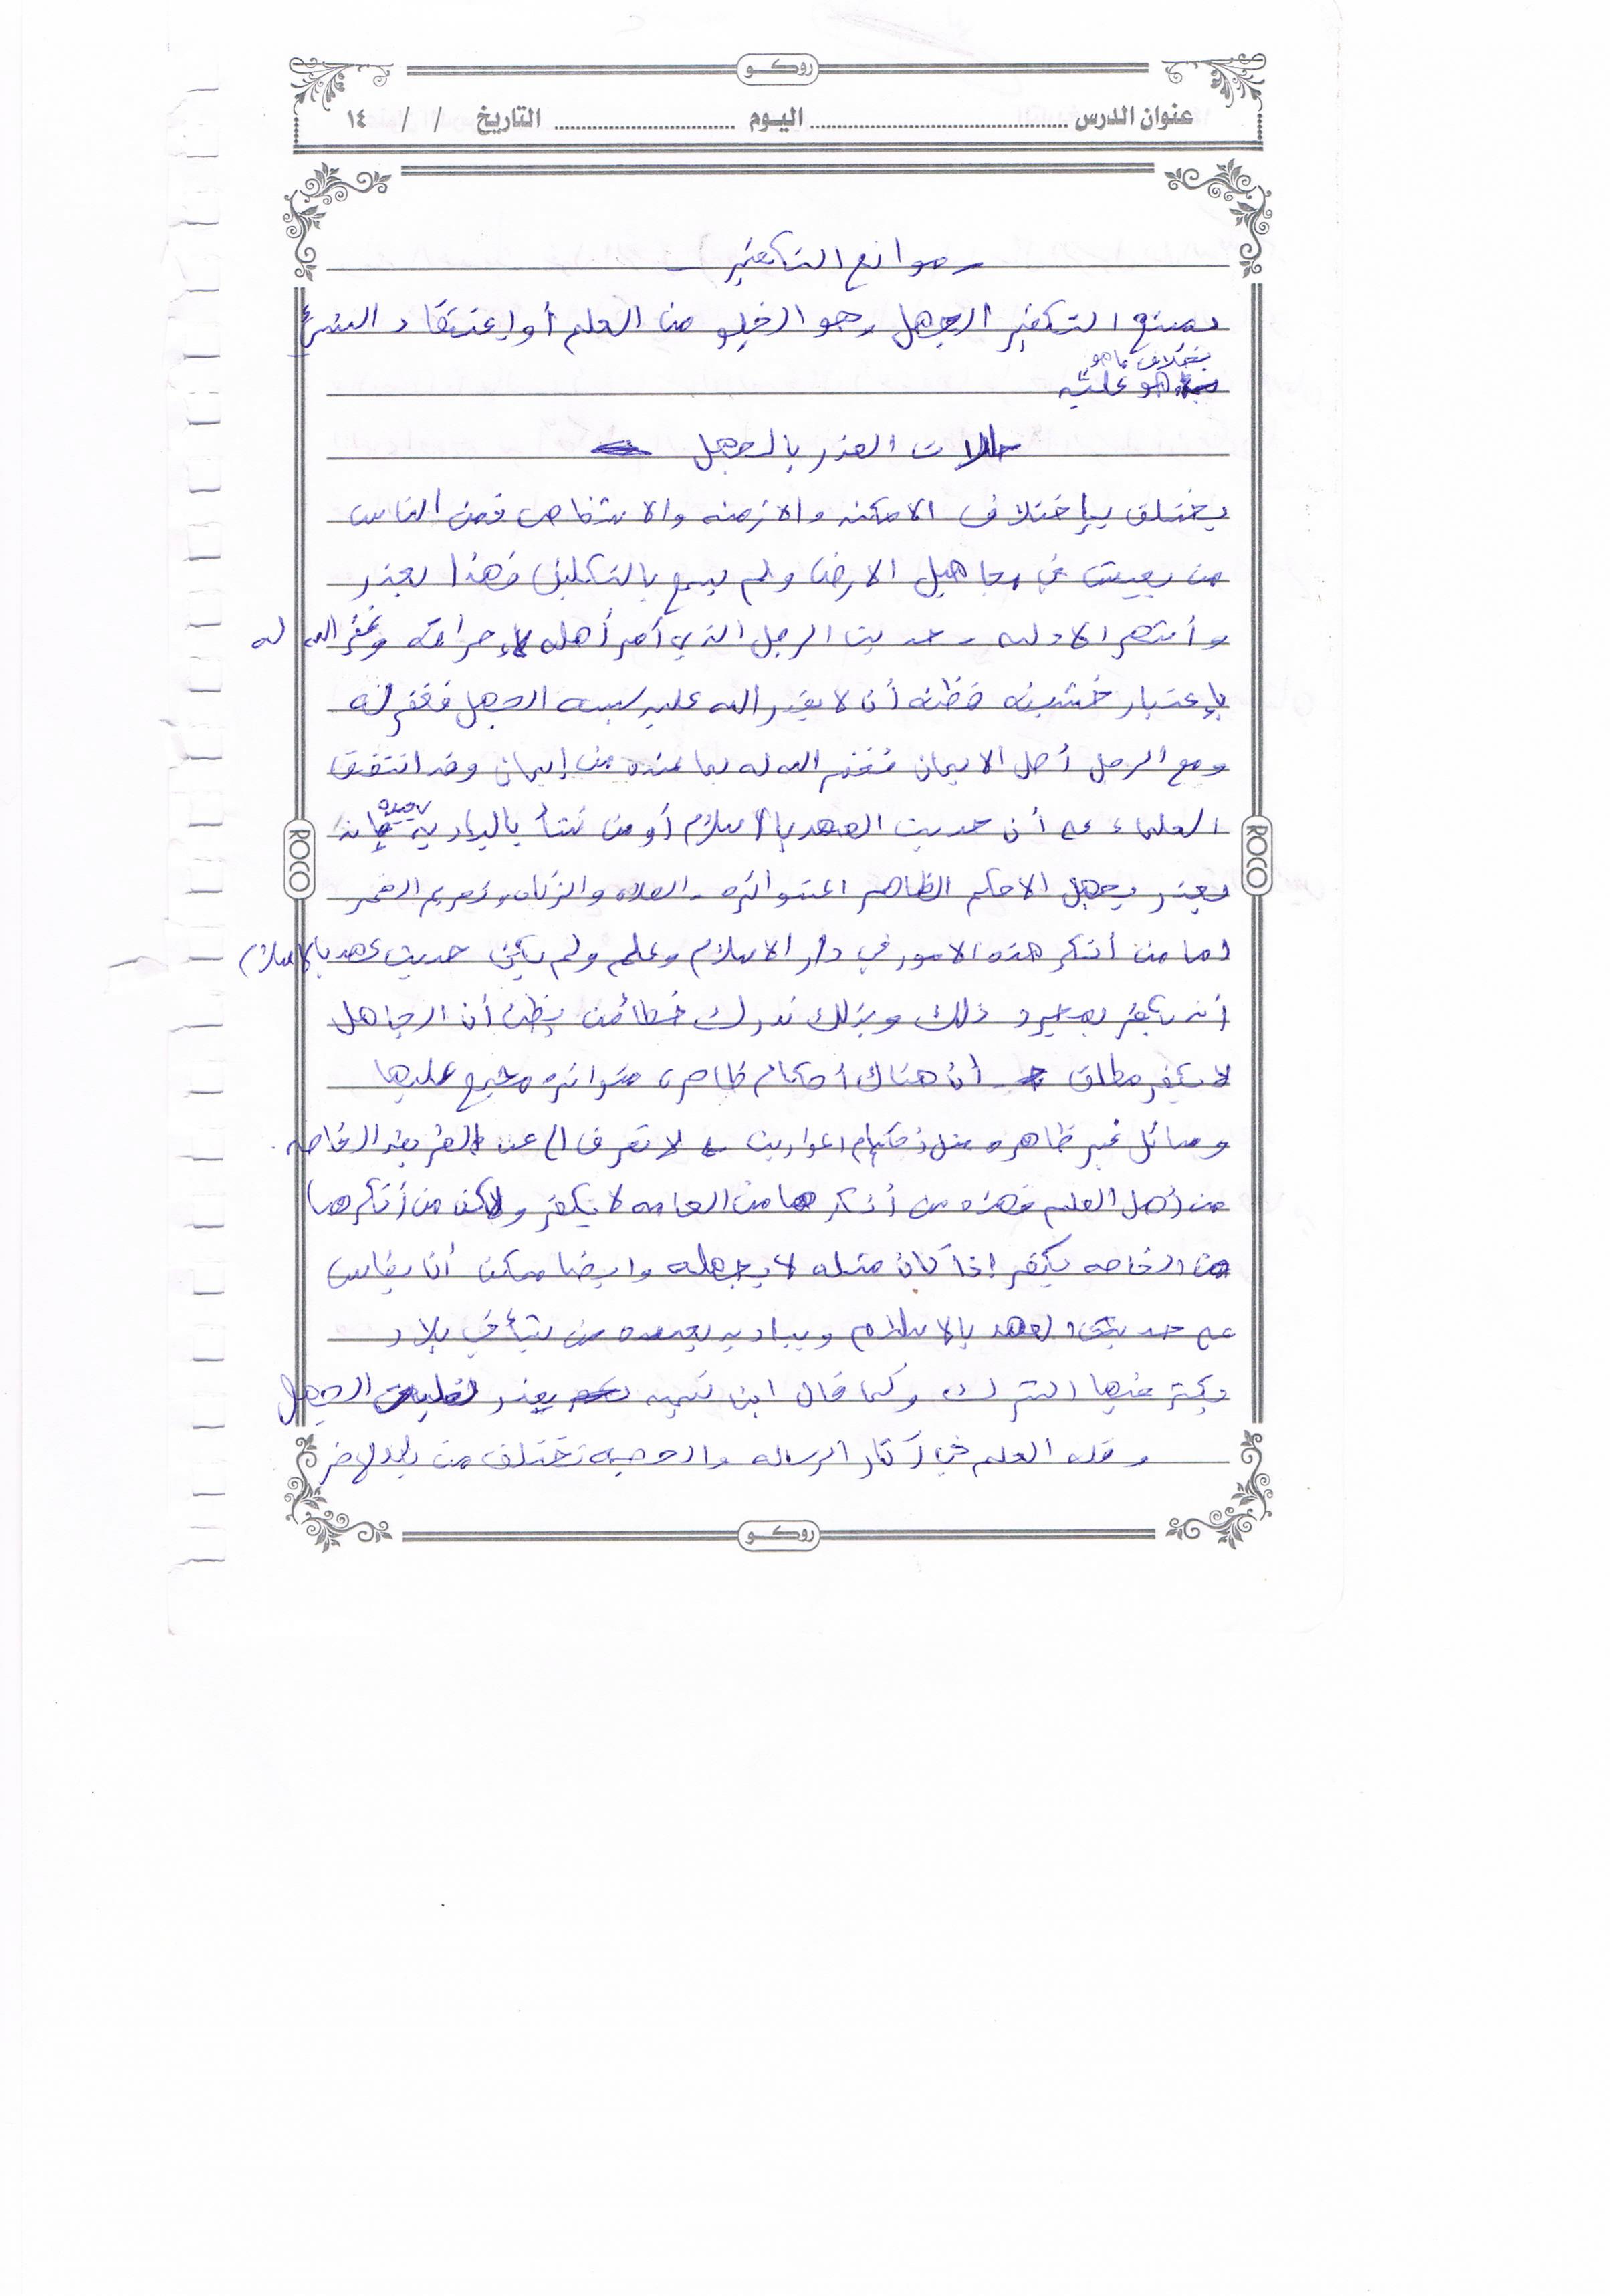 روكـو
عنوان الدرس ........ اليوم ........ التاريخ / / ١٤
موانع التكفير
يمنع التكفير الجهل وهو الخلو من العلم أو إعتقاد الشيء
بخلاف ما هو
هو عليه
حالات العذر بالجهل
يختلف بإختلاف الامكنه والازمنه والاشخاص فمن الناس
من يعيش في مجاهيل الارض ولم يسمع بالتكليف فهذا يعذر
وأشهر الادله حديث الرجل الذي أمر أهله لإحراقه وغفر الله له
بإعتبار خشيته فظنه أن لا يقدر الله عليه سببه الجهل فغفر له
ومع الرجل أصل الايمان فغفر الله له بما عنده من إيمان وقد اتفق
العلماء على أن حديث العهد بالاسلام أو من نشأ بالباديه بعيده فإنه
يعذر بجهل الاحكم الظاهر المتواتره - الصلاه والزكاه وتحريم الخمر
اما من أنكر هذه الامور في دار الاسلام وعلم ولم يكن حديث عهد بالاسلام
أنه يكفر بمجرد ذلك وبذلك ندرك خطأ من يظن أن الجاهل
لا يكفر مطلق - أن هناك أحكام ظاهره متواتره مجمع عليها
ومسائل غير ظاهره مثل أحكام المواريث لا تعرف إلا عن طريق الخاصه
من أهل العلم فهذه من أنكرها من العامه لا يكفر ولاكن من أنكرها
من الخاصه يكفر إذا كان مثله لا يجهله وايضا ممكن أن يقاس
على حديث العهد بالاسلام وبباديه بعيده من نشأ في بلاد
يكثر فيها الشرك وكما قال ابن تيميه يعذر لغلبة الجهل
وقله العلم في آثار الرساله والحجيه تختلف من بلد لاخر
ROCO
ROCO
روكـو